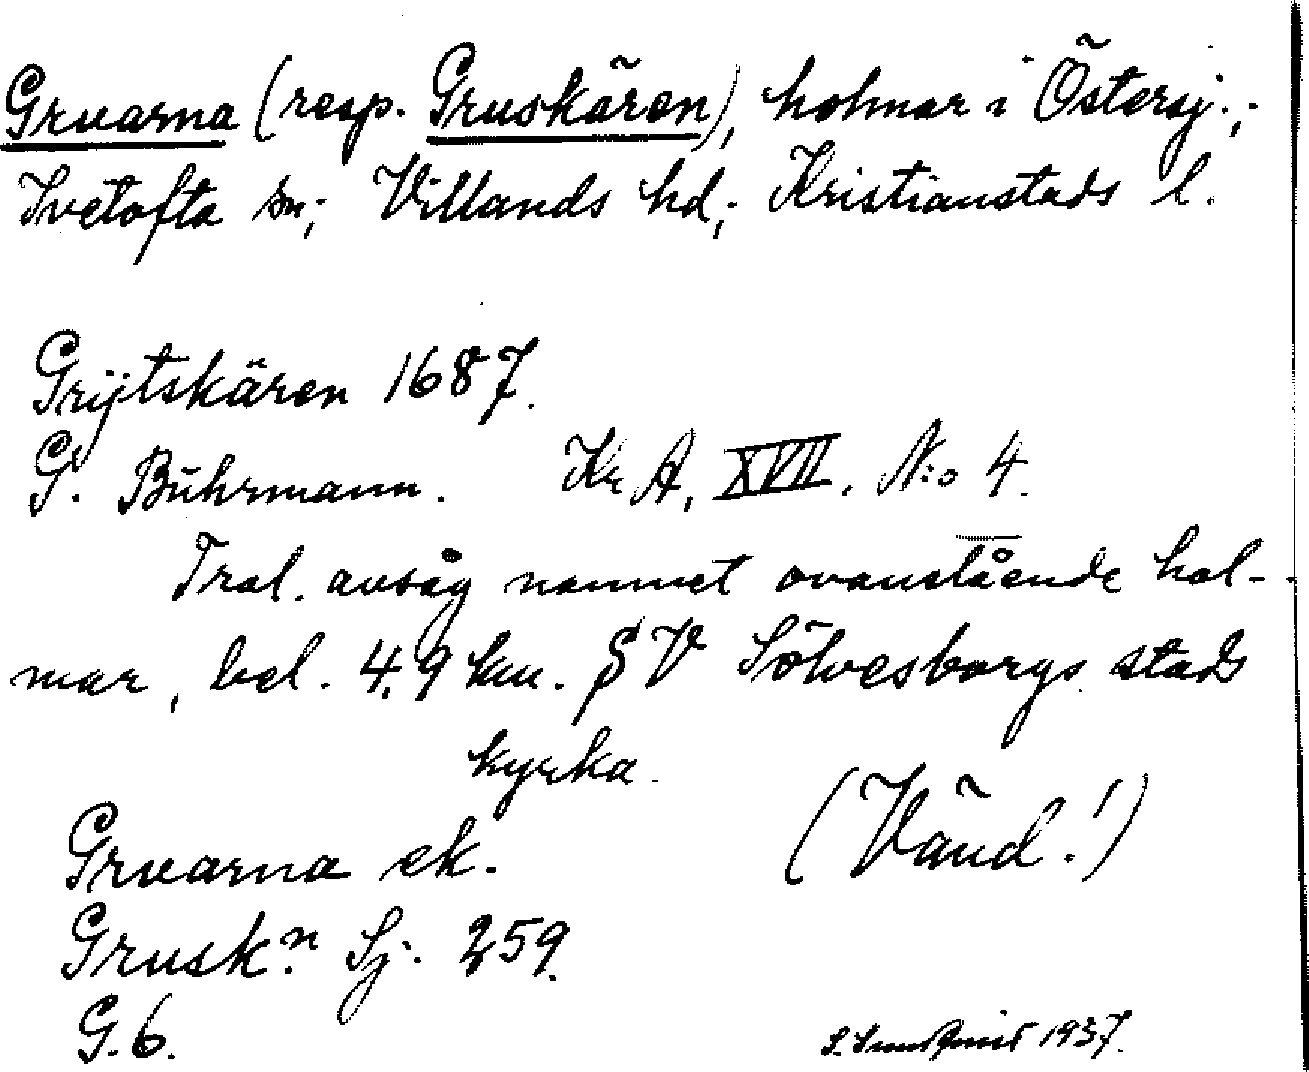 Gruarna (resp. Gruskären), holmar i Östersj.,
Ivetofta sn; Villands hd; Kristianstads l.
Grÿtskären 1687.
G. Bührmann. Kr. A, XVII. N:o 4.
Trol. avsåg namnet ovanstående hol-
mar, bel. 4,9 km. SV Sölvesborgs stads
kyrka.
(Vänd!)
Gruarna ek.
Grusk:n Sj. 259.
G.6.
1937.